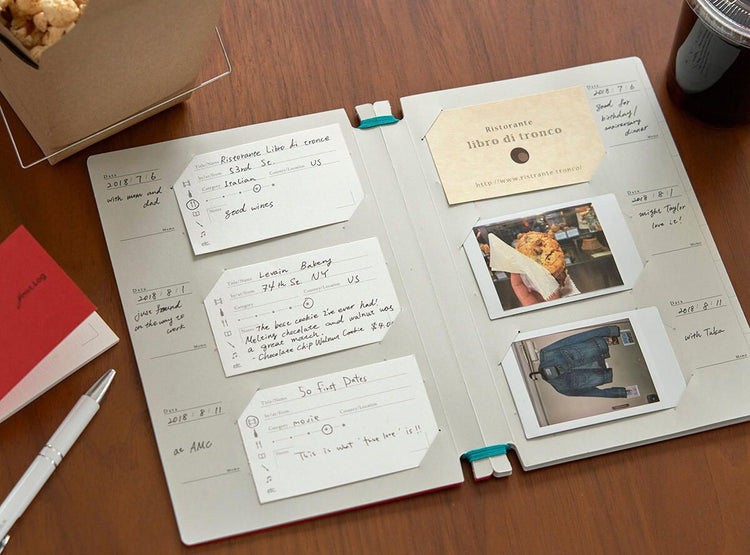 Date
2018/7/6
with mum and
dad
Memo
Title/Name Ristorante Libro di tronco
53rd St.
Category Italian Country/Location US
good wines
etc.
Date
2018/8/1
just found
on the way to
work
Memo
Title/Name Levain Bakery
74th St. NY
Category Country/Location US
The best cookie I've ever had!
Melting chocolate and walnut was
a great match.
- Chocolate Chip Walnut Cookie $4.00
etc.
Date
2018/8/11
at AMC
Memo
Title/Name 50 First Dates
Category movie Country/Location
This is what "true love" is!!
etc.
Ristorante
libro di tronco
http://www.ristrante-tronco/
Date
2018/7/6
good for
birthday/
anniversary
dinner
Memo
Date
2018/8/1
might Taylor
love it!
Memo
Date
2018/8/11
with Taka
Memo